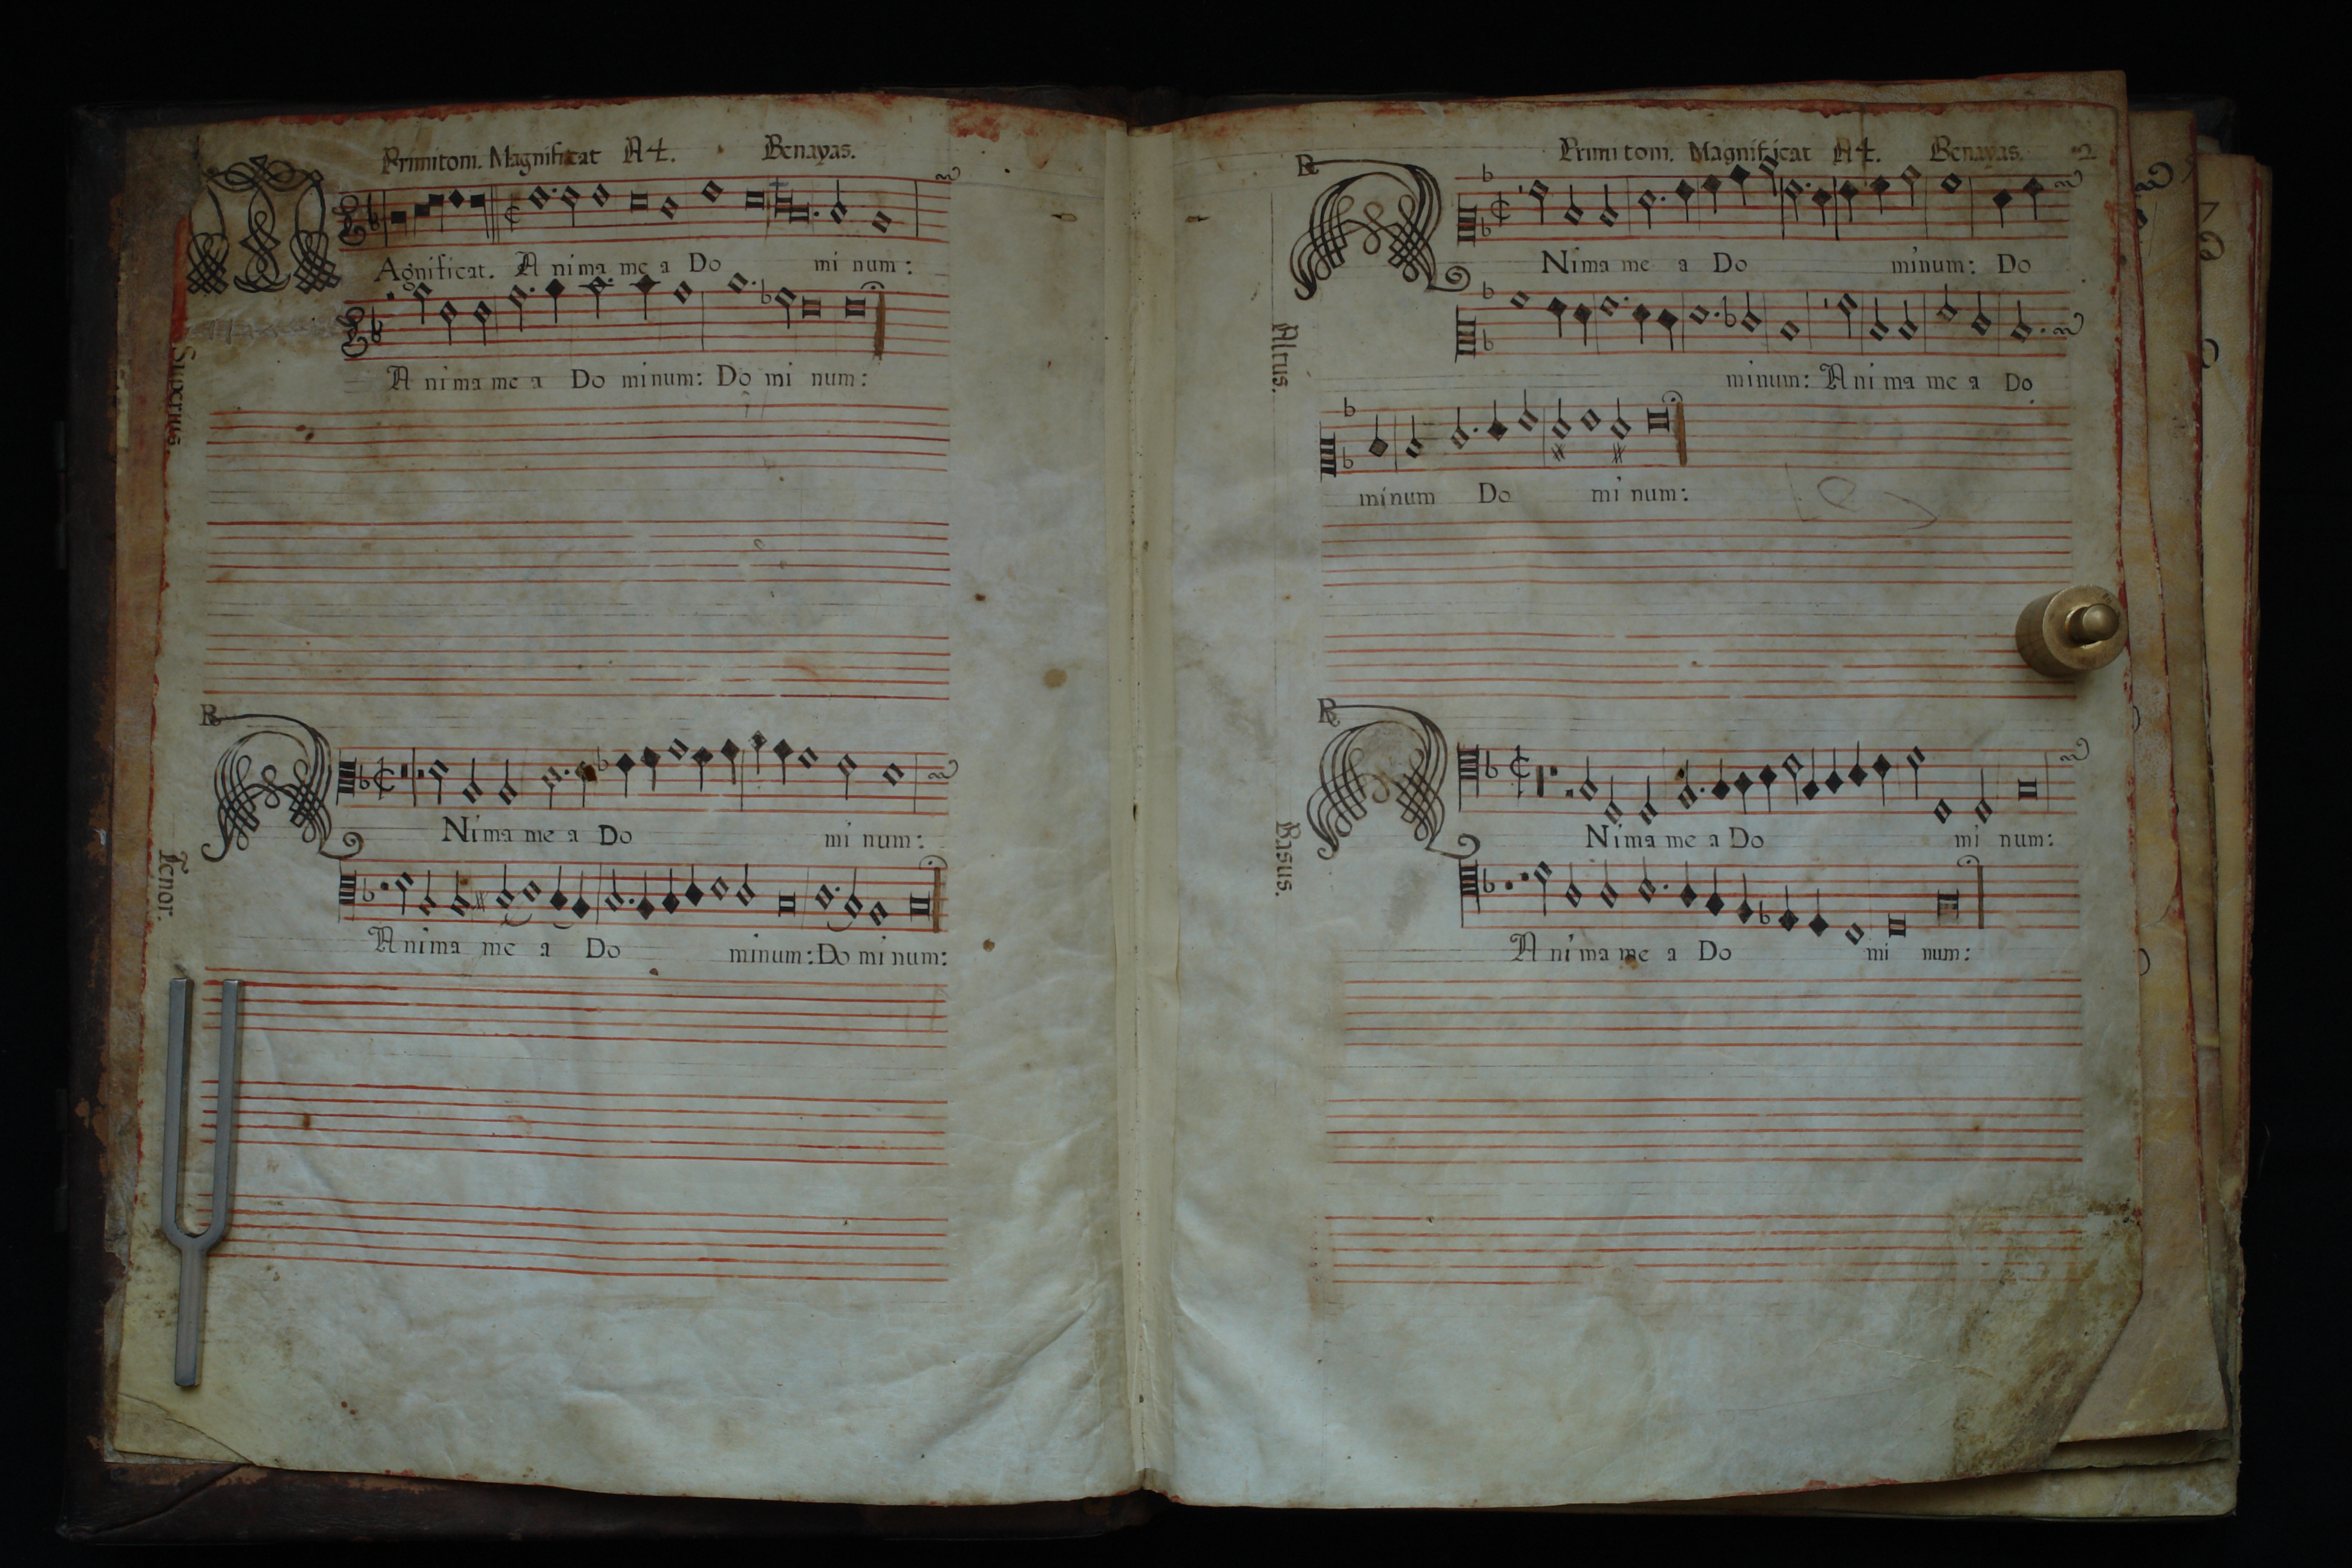 Primitoni. Magnificat A4. Benayas.
Agnificat. A nima me a Do mi num:
A nima me a Do minum: Do mi num:
Superius.
R
Nima me a Do mi num:
Anima me a Do minum: Do mi num:
Tenor.
Primi toni. Magnificat A4. Benayas. 2
R
Nima me a Do minum: Do
minum: A ni ma me a Do
Altus.
minum Do mi num:
R
Nima me a Do mi num:
A nima me a Do mi num:
Basus.